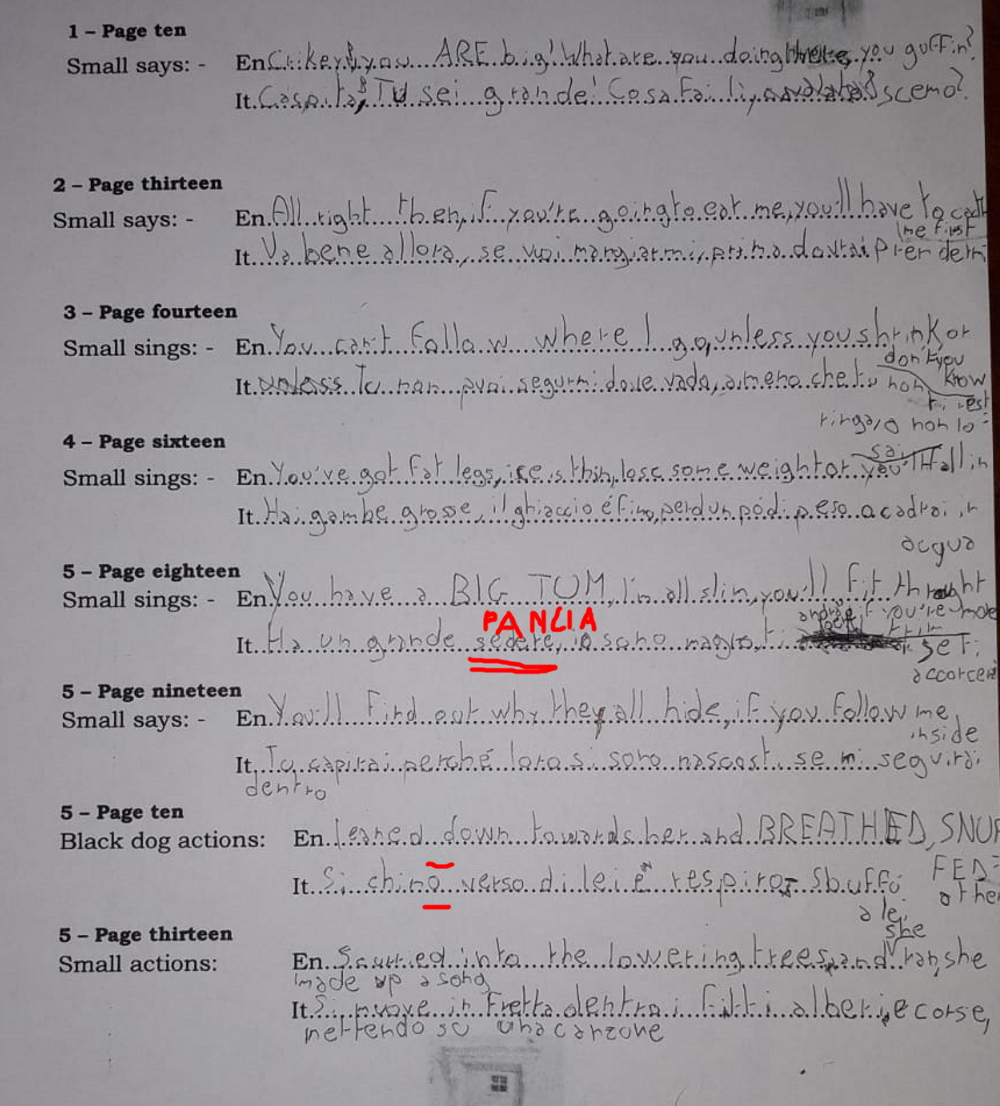 1 – Page ten
Small says: - En. Crikey, you ARE big! What are you doing there, you guffin?
It. Caspita, TU sei grande! Cosa fai lì, scemo?
2 – Page thirteen
Small says: - En. All right then, if you're going to eat me, you'll have to catch
me first
It. Va bene allora, se vuoi mangiarmi, prima dovrai prendermi
3 – Page fourteen
Small sings: - En. You can't follow where I go, unless you shrink or
don't you
know
It. Tu non puoi seguirmi dove vado, a meno che tu non
ti rest
ringa, o non lo
sai
4 – Page sixteen
Small sings: - En. You've got fat legs, ice is thin, lose some weight or you'll fall in
It. Hai gambe grosse, il ghiaccio é fino, perdi un pó di peso o cadrai in
acqua
5 – Page eighteen
Small sings: - En. You have a BIG TUM, I'm all slim, you'll fit through
if you're more
trim
PANCIA
It. Ha un grande sedere, io sono magro, ti
andrà
se ti
accorcerai
5 – Page nineteen
Small says: - En. You'll find out why they all hide, if you follow me
inside
It. Tu capirai perché loro si sono nascosti se mi seguirai
dentro
5 – Page ten
Black dog actions: En. leaned down towards her and BREATHED, SNUF
FED
It. Si chino verso di lei e respiro, sbuffó
a lei
5 – Page thirteen
she
Small actions: En. Scurried into the lowering trees, and ran, she
made up a song
It. Si muove in fretta dentro i fitti alberi, e corse,
mettendo su una canzone